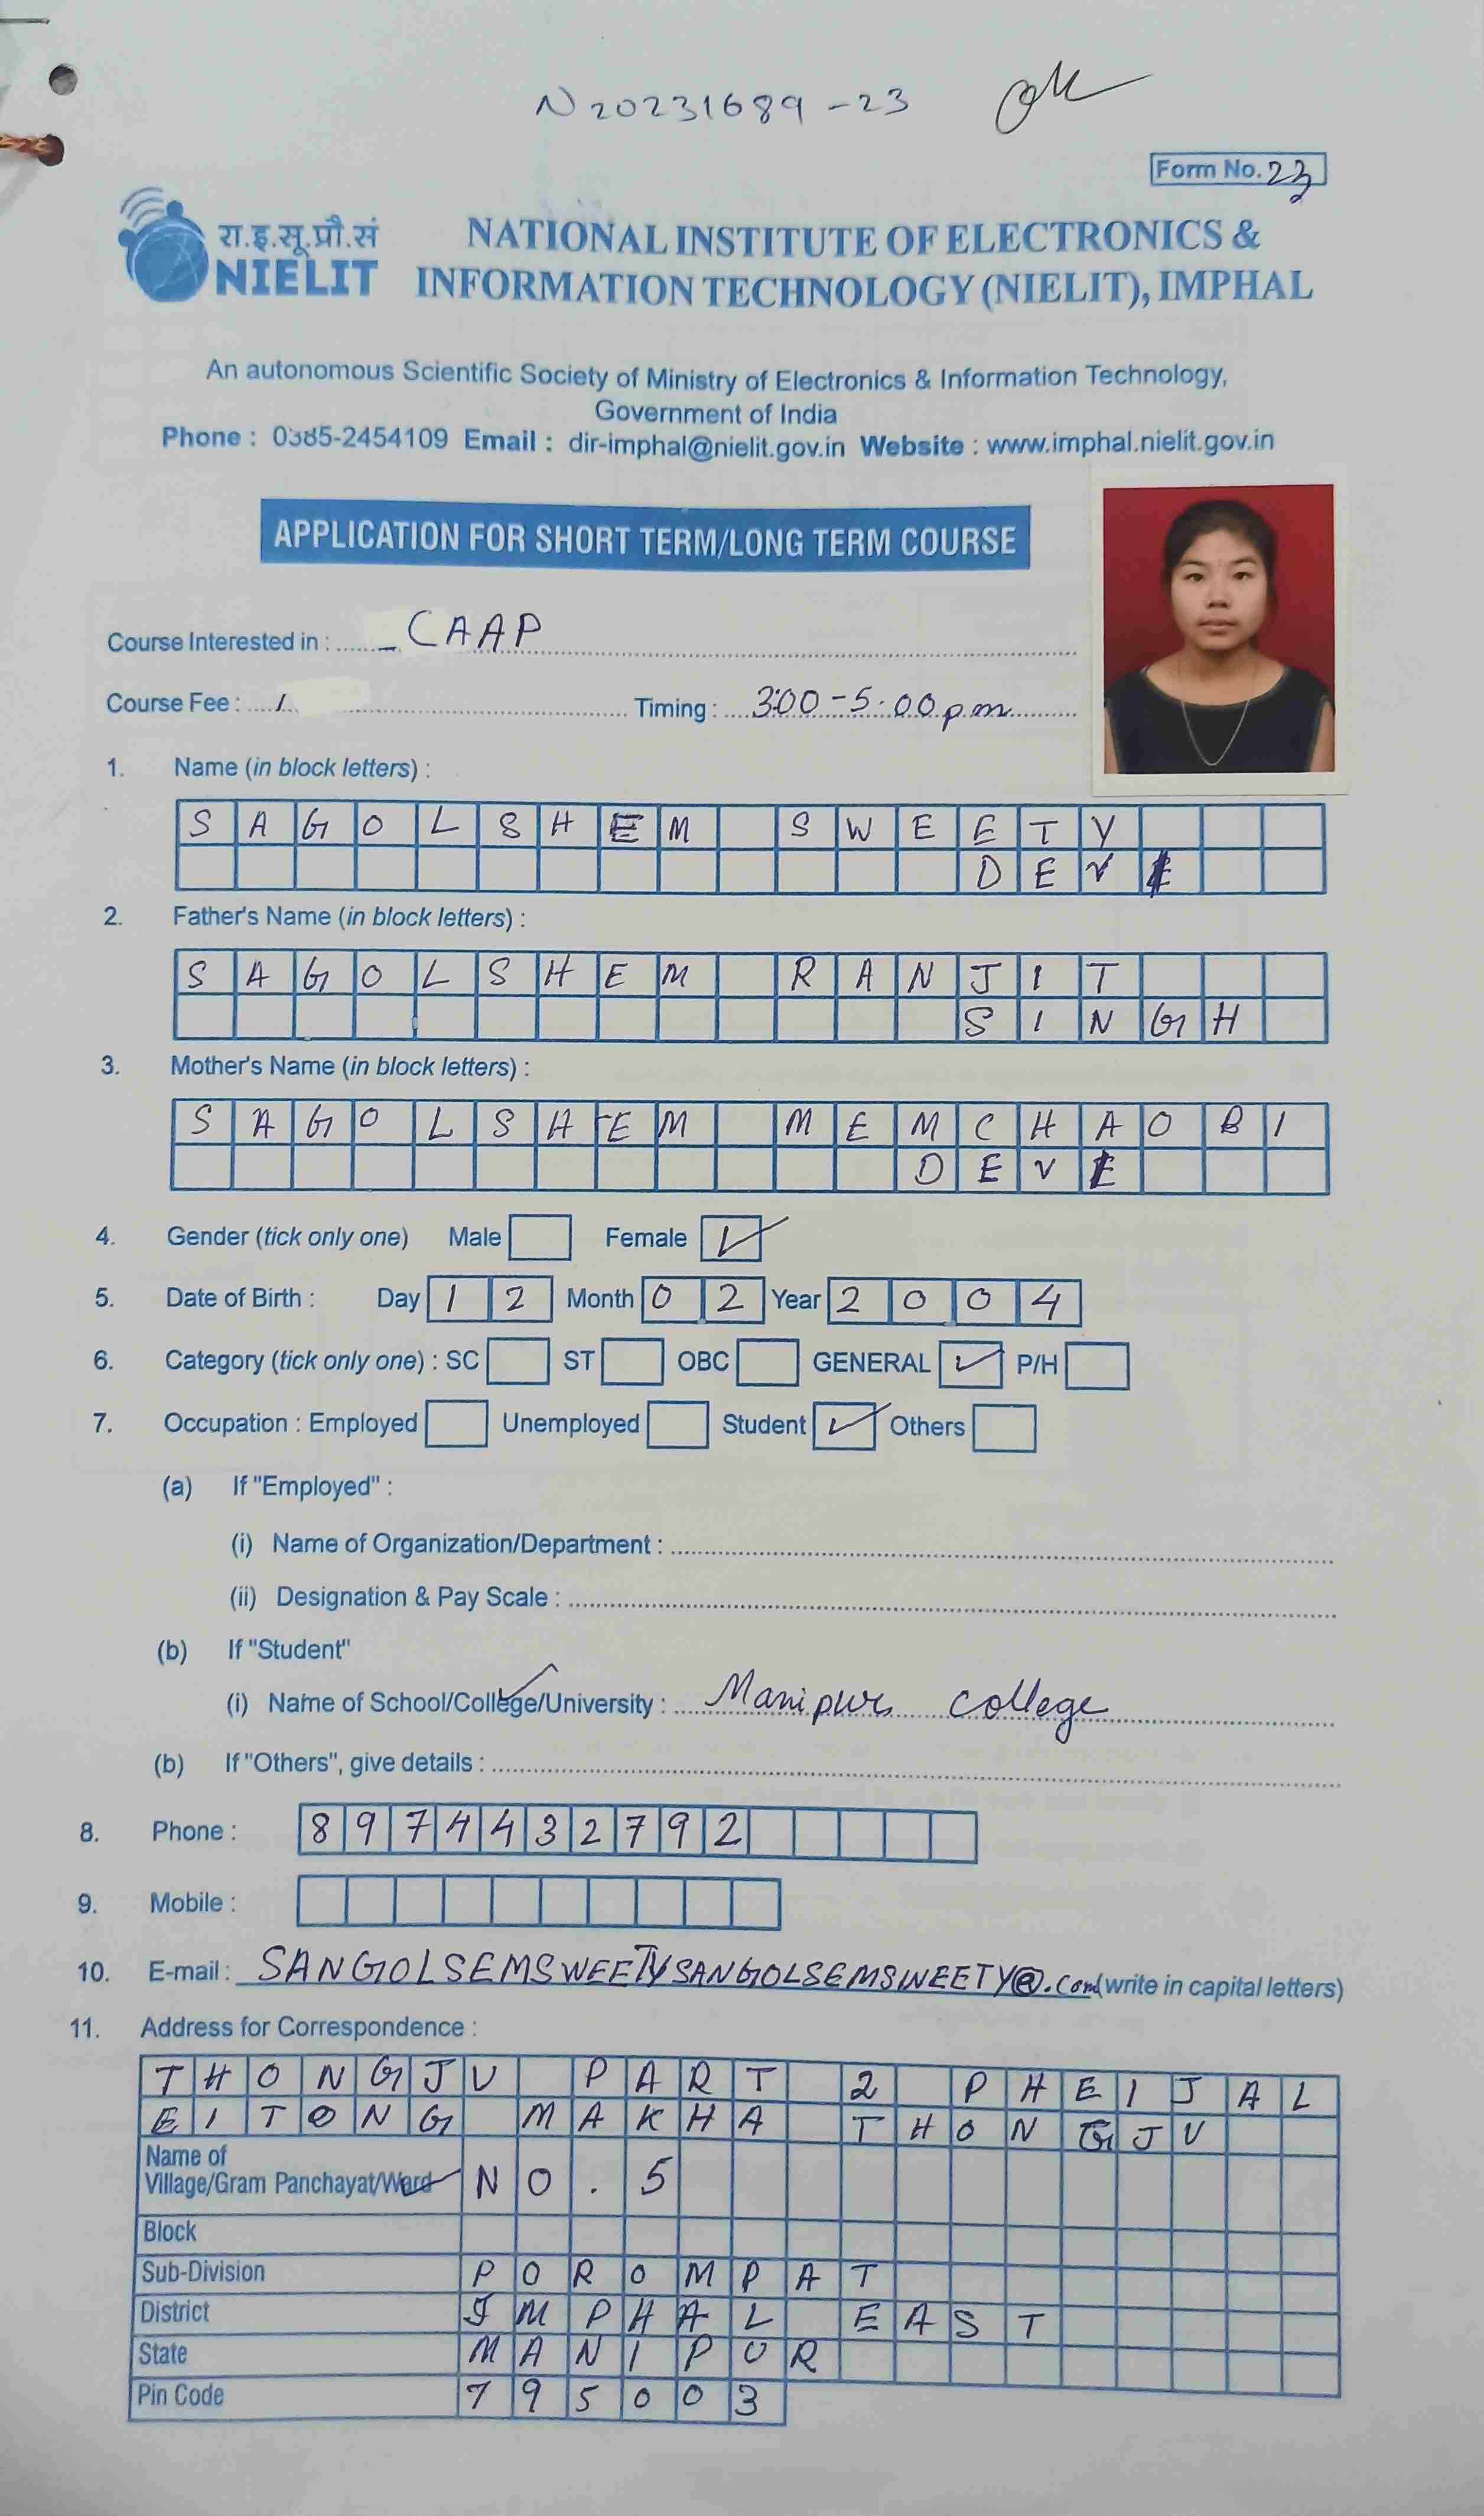 N20231689-23
Form No. 23
रा.इ.सू.प्रौ.सं
NIELIT
NATIONAL INSTITUTE OF ELECTRONICS &
INFORMATION TECHNOLOGY (NIELIT), IMPHAL
An autonomous Scientific Society of Ministry of Electronics & Information Technology,
Government of India
Phone : 0385-2454109 Email : dir-imphal@nielit.gov.in Website : www.imphal.nielit.gov.in
APPLICATION FOR SHORT TERM/LONG TERM COURSE
Course Interested in : CAAP
Course Fee : Timing : 3:00-5:00pm
1. Name (in block letters) :
SAGOLSHEM SWEETY
DEV
2. Father's Name (in block letters) :
SAGOLSHEM RANJIT
SINGH
3. Mother's Name (in block letters) :
SAGOLSHEM MEMCHAOBI
DEV
4. Gender (tick only one) Male Female ✓
5. Date of Birth : Day 12 Month 02 Year 2004
6. Category (tick only one) : SC ST OBC GENERAL ✓ P/H
7. Occupation : Employed Unemployed Student ✓ Others
(a) If "Employed" :
(i) Name of Organization/Department :
(ii) Designation & Pay Scale :
(b) If "Student"
(i) Name of School/College/University : Manipur College
(b) If "Others", give details :
8. Phone : 8974432792
9. Mobile :
10. E-mail : SANGOLSEMSWEETYSANGOLSEMSWEETY@.com (write in capital letters)
11. Address for Correspondence :
THONGJU PART 2 PHEIJAL
EITONG MAKHA THONGJU
Name of
Village/Gram Panchayat/Ward NO. 5
Block
Sub-Division POROMPAT
District IMPHAL EAST
State MANIPUR
Pin Code 795003